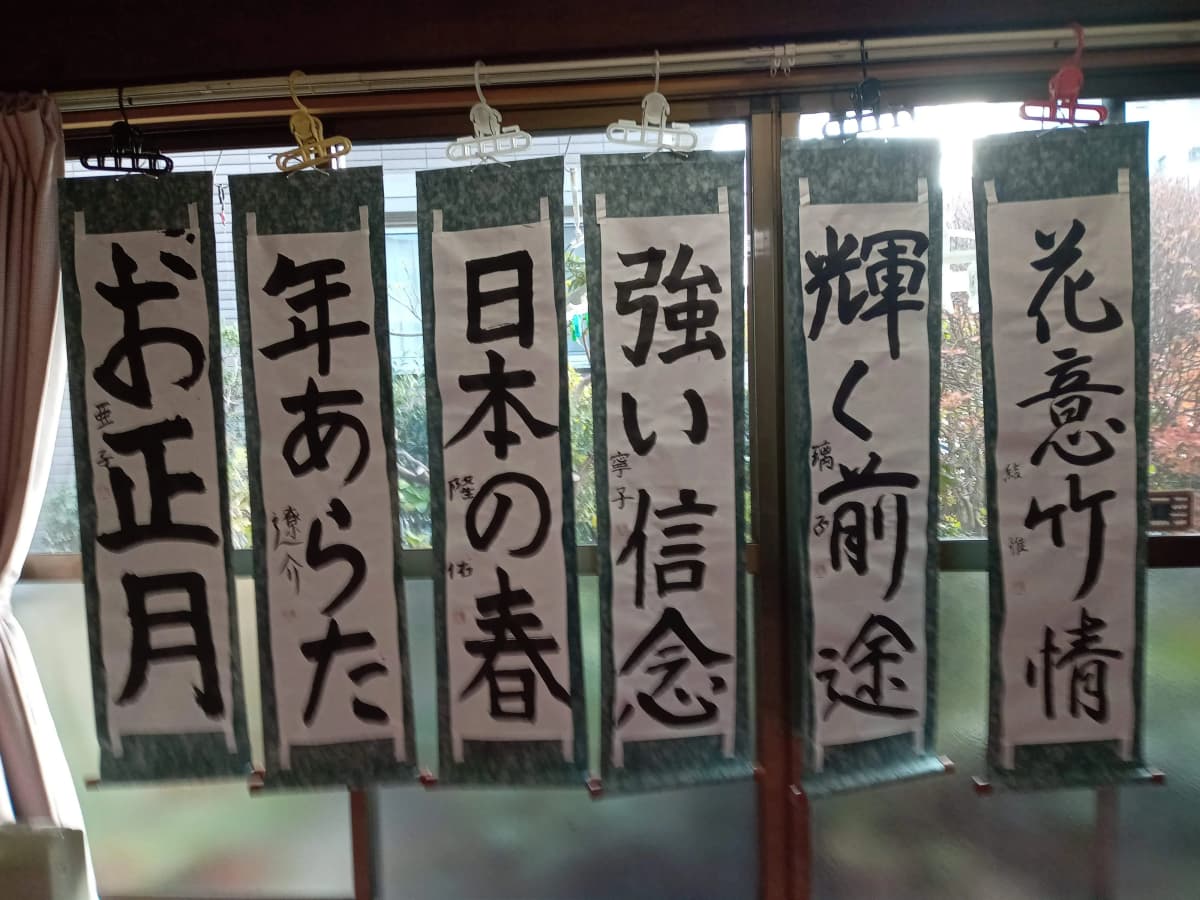 花意竹情
結雅
輝く前途
璃子
強い信念
寧子
日本の春
隆佑
年あらた
遼介
お正月
亜子